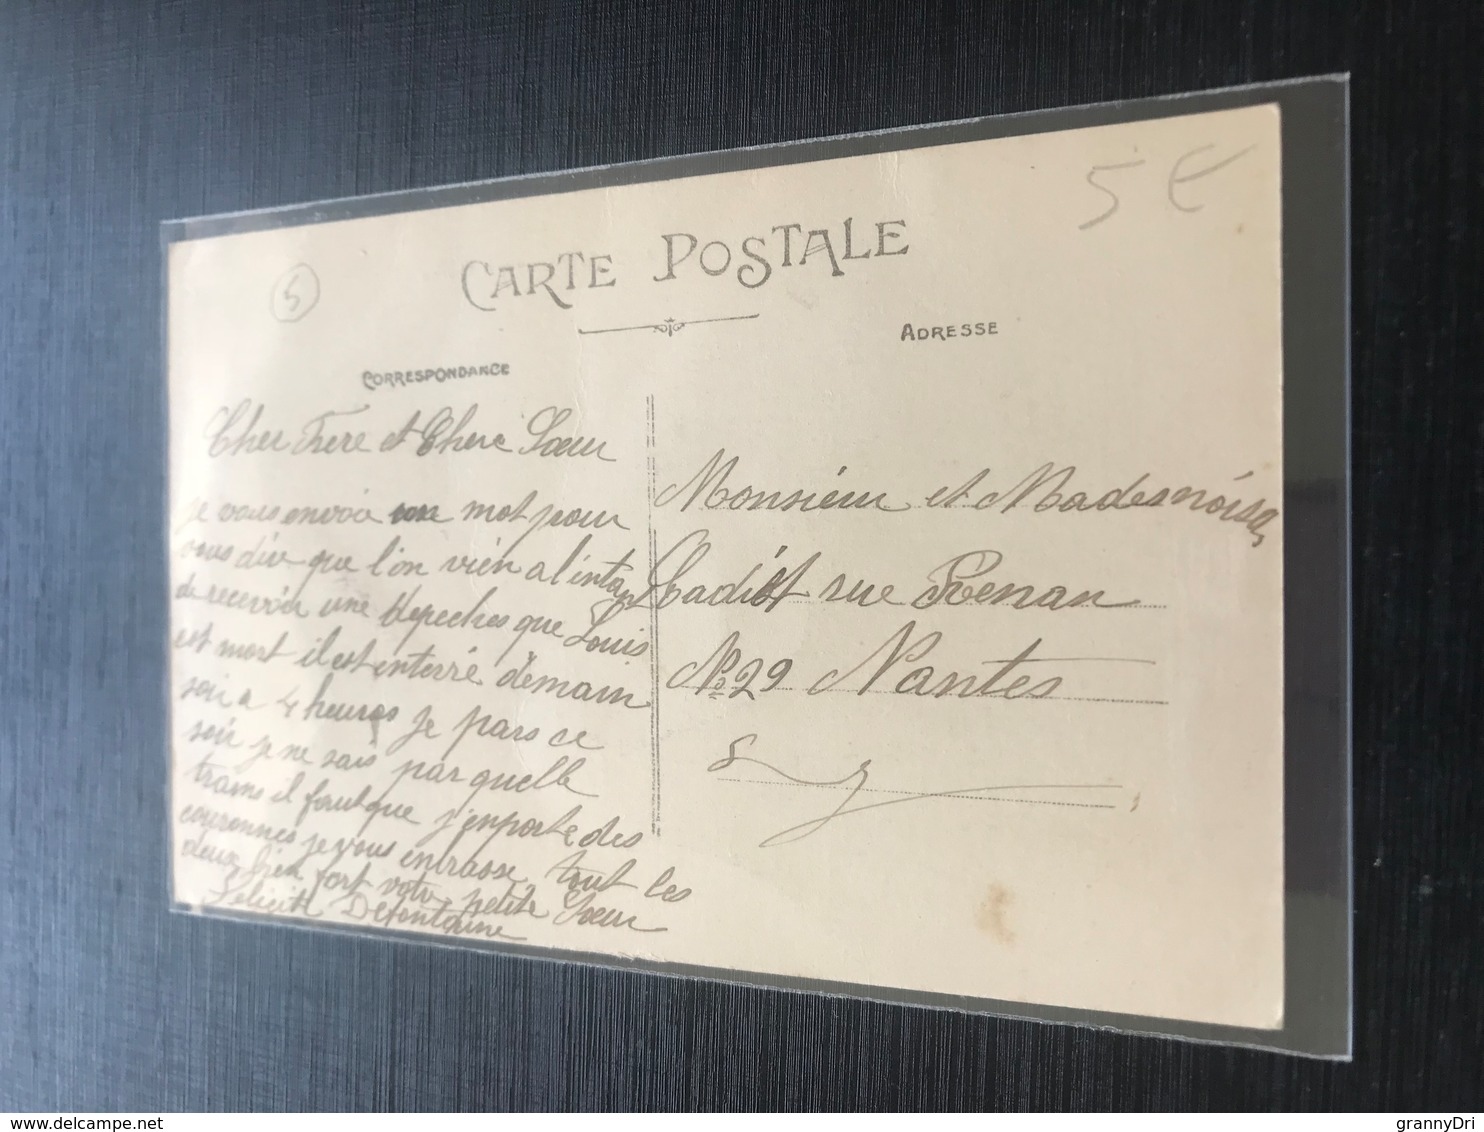 5 €
CARTE POSTALE
5
ADRESSE
CORRESPONDANCE
Cher Frere et Chere Soeur
je vous envoie un mot pour
vous dire que l'on vien a l'intan
de recevoir une depeches que Louis
est mort il est enterré demain
soir a 4 heures je pars ce
soir je ne sais par quelle
trains il faut que j'enporte des
couronnes je vous enrasse tout les
deux bien fort votre petite Soeur
Felicité
Monsieur et Mademoisel
Cadiot rue Renan
No 29 Nantes
grannyDri